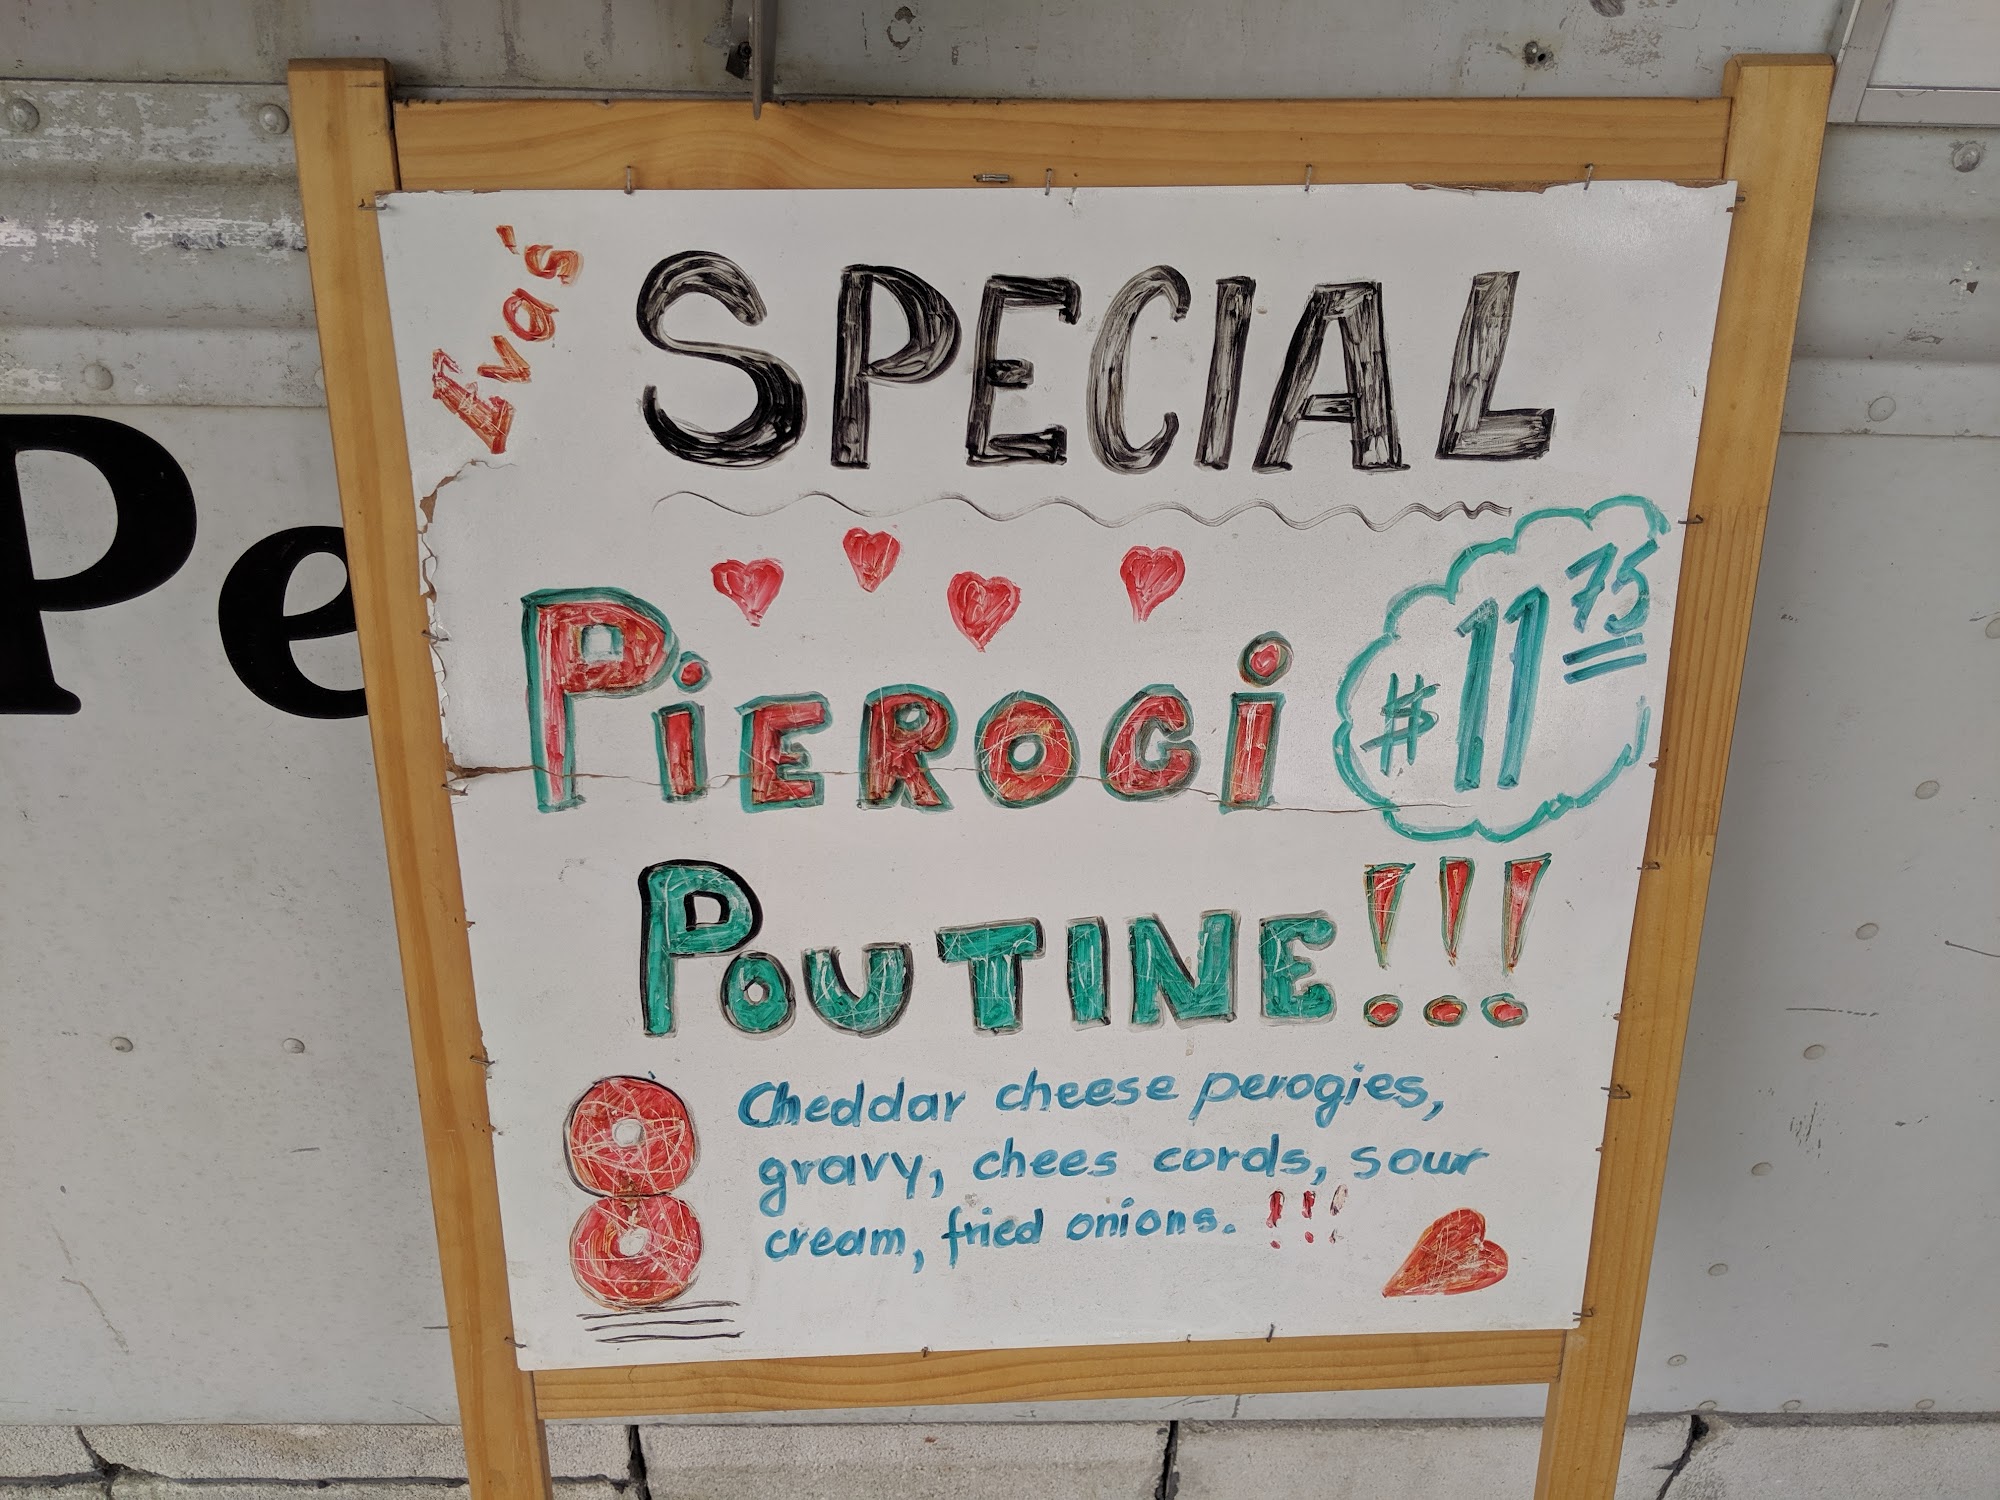 Pe
Eva's
SPECIAL
PIEROGi $11 75
POUTINE!!!
8 Cheddar cheese perogies,
gravy, chees cords, sour
cream, fried onions. !!!